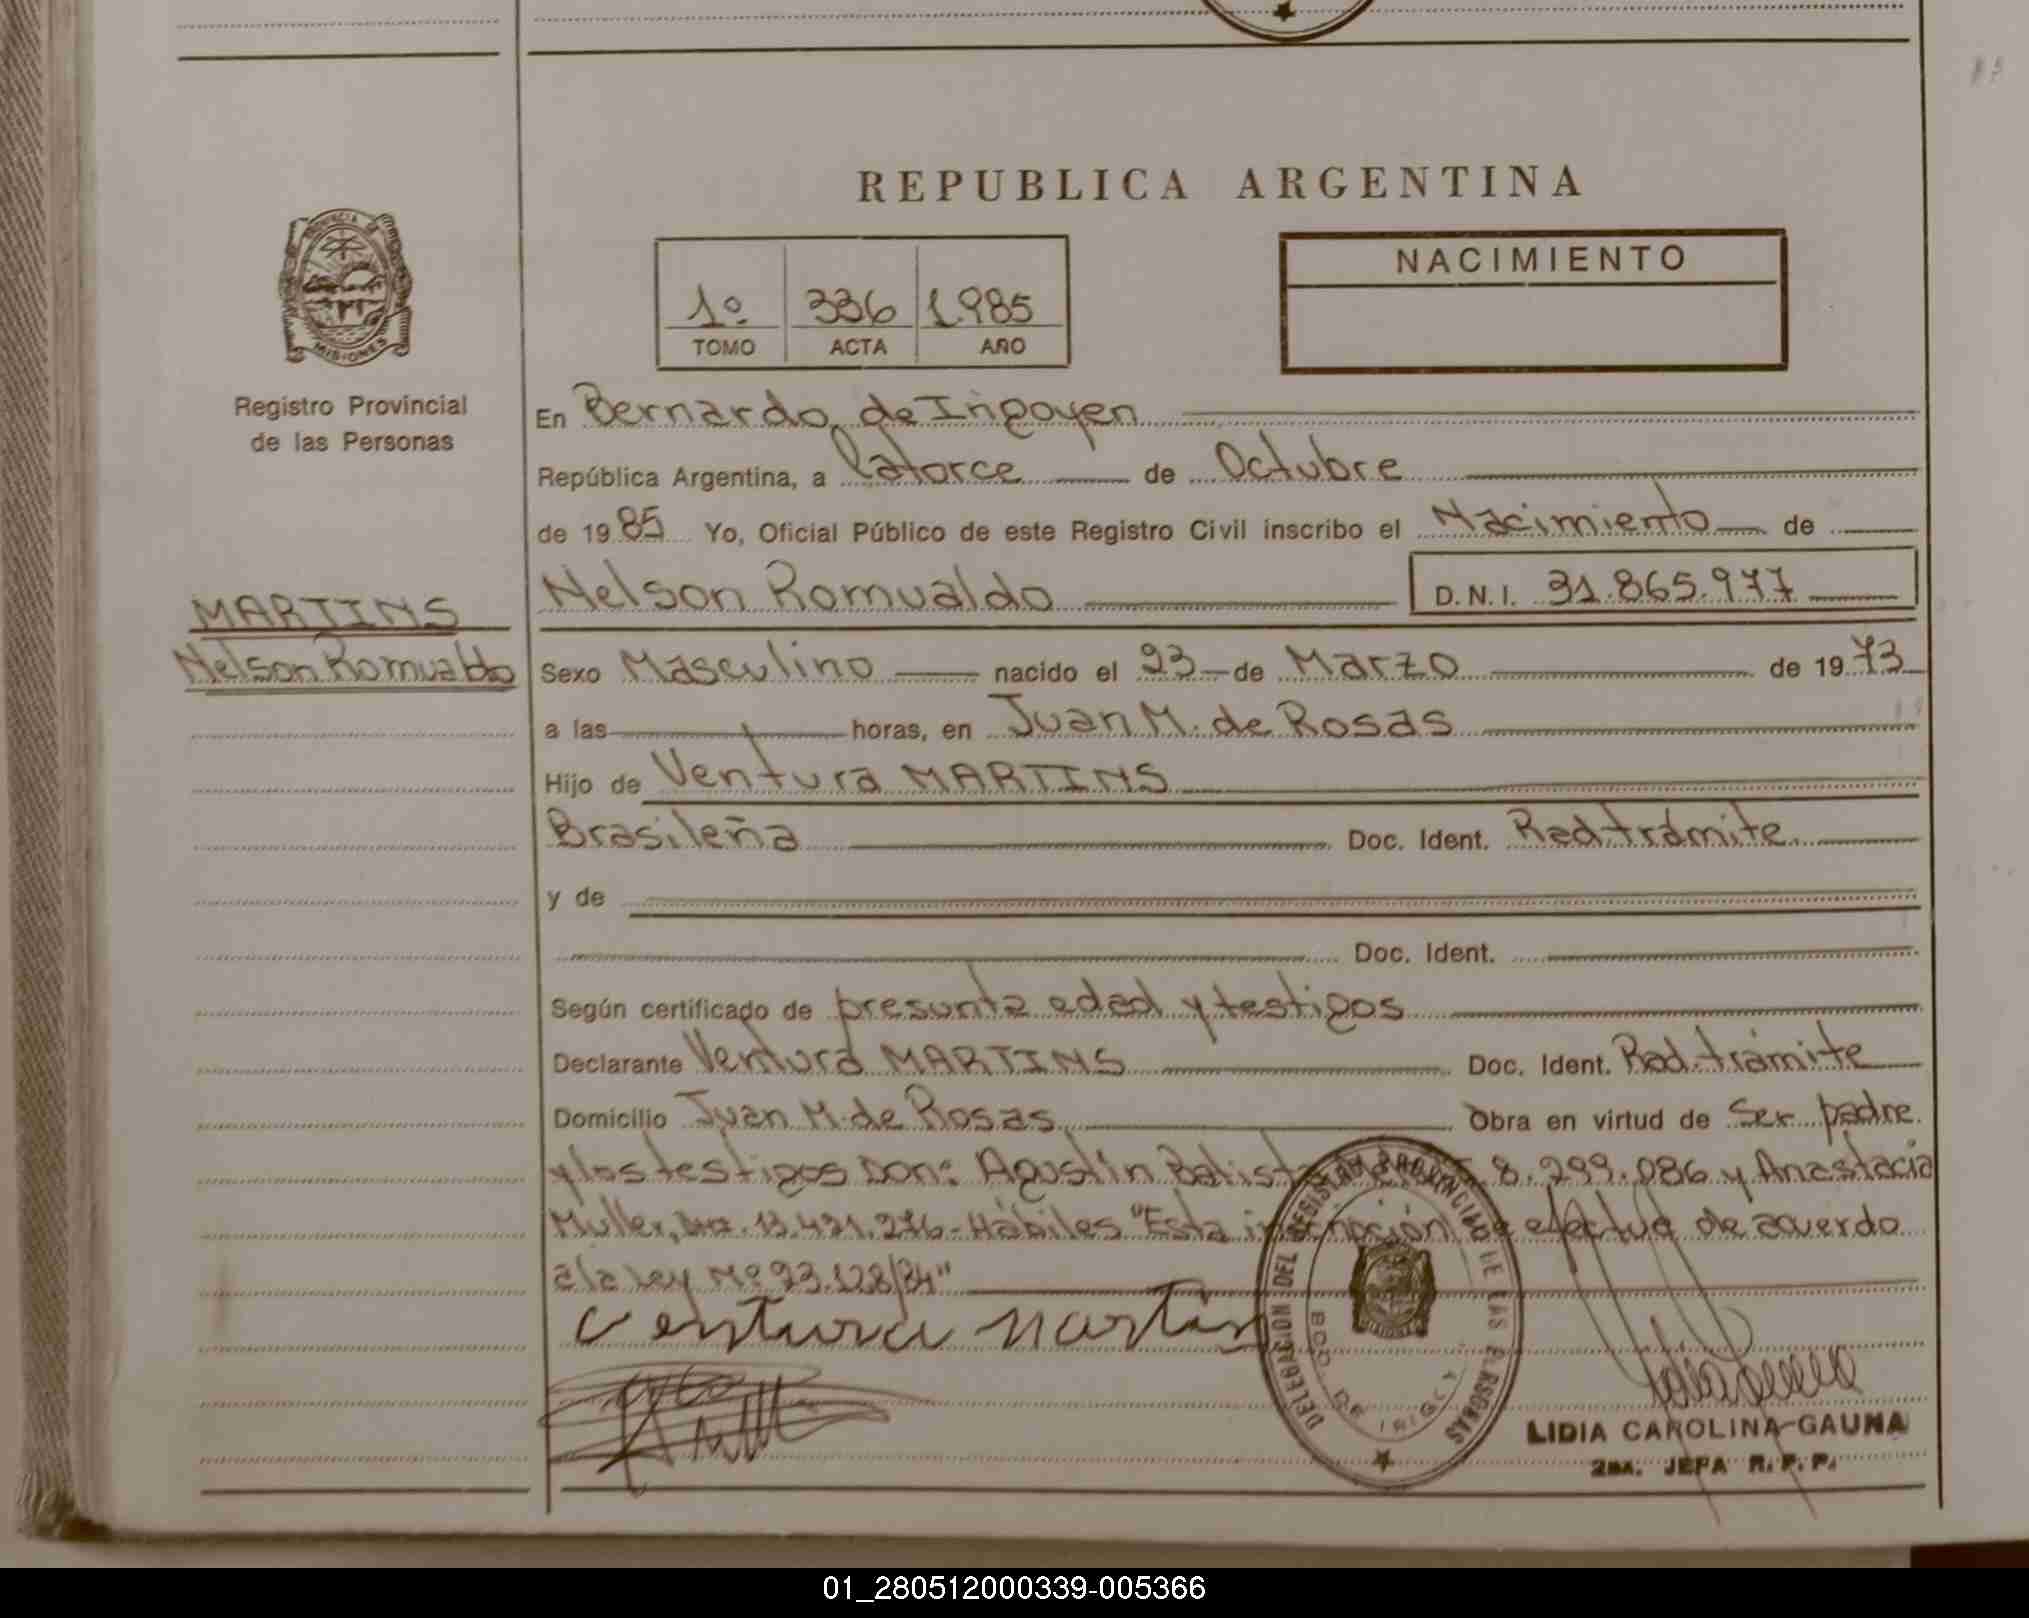 REPUBLICA ARGENTINA
PROVINCIA
MISIONES
Registro Provincial
de las Personas
1º 336 1.985
TOMO ACTA AÑO
NACIMIENTO
En Bernardo de Irigoyen
República Argentina, a Catorce de Octubre
de 1985 Yo, Oficial Público de este Registro Civil inscribo el Nacimiento de
Nelson Romualdo D.N.I. 31.865.977
MARTINS
Nelson Romualdo
Sexo Masculino nacido el 23 de Marzo de 1973
a las horas, en Juan M. de Rosas
Hijo de Ventura MARTINS
Brasileña Doc. Ident. Rad. trámite
y de
Doc. Ident.
Según certificado de presunta edad y testigos
Declarante Ventura MARTINS Doc. Ident. Rad. trámite
Domicilio Juan M. de Rosas Obra en virtud de Ser padre
y los testigos Don: Agustín Batista 8.299.086 y Anastacia
Muller, 13.421.276 - Hábiles "Esta inscripción se efectua de acuerdo
a la ley Nº 23.128/84"
Ventura Martins
DELEGACION DEL REGISTRO PROVINCIAL DE LAS PERSONAS
BDO. DE IRIGOY
LIDIA CAROLINA GAUNA
2da. JEFA R. P. P.
01_280512000339-005366